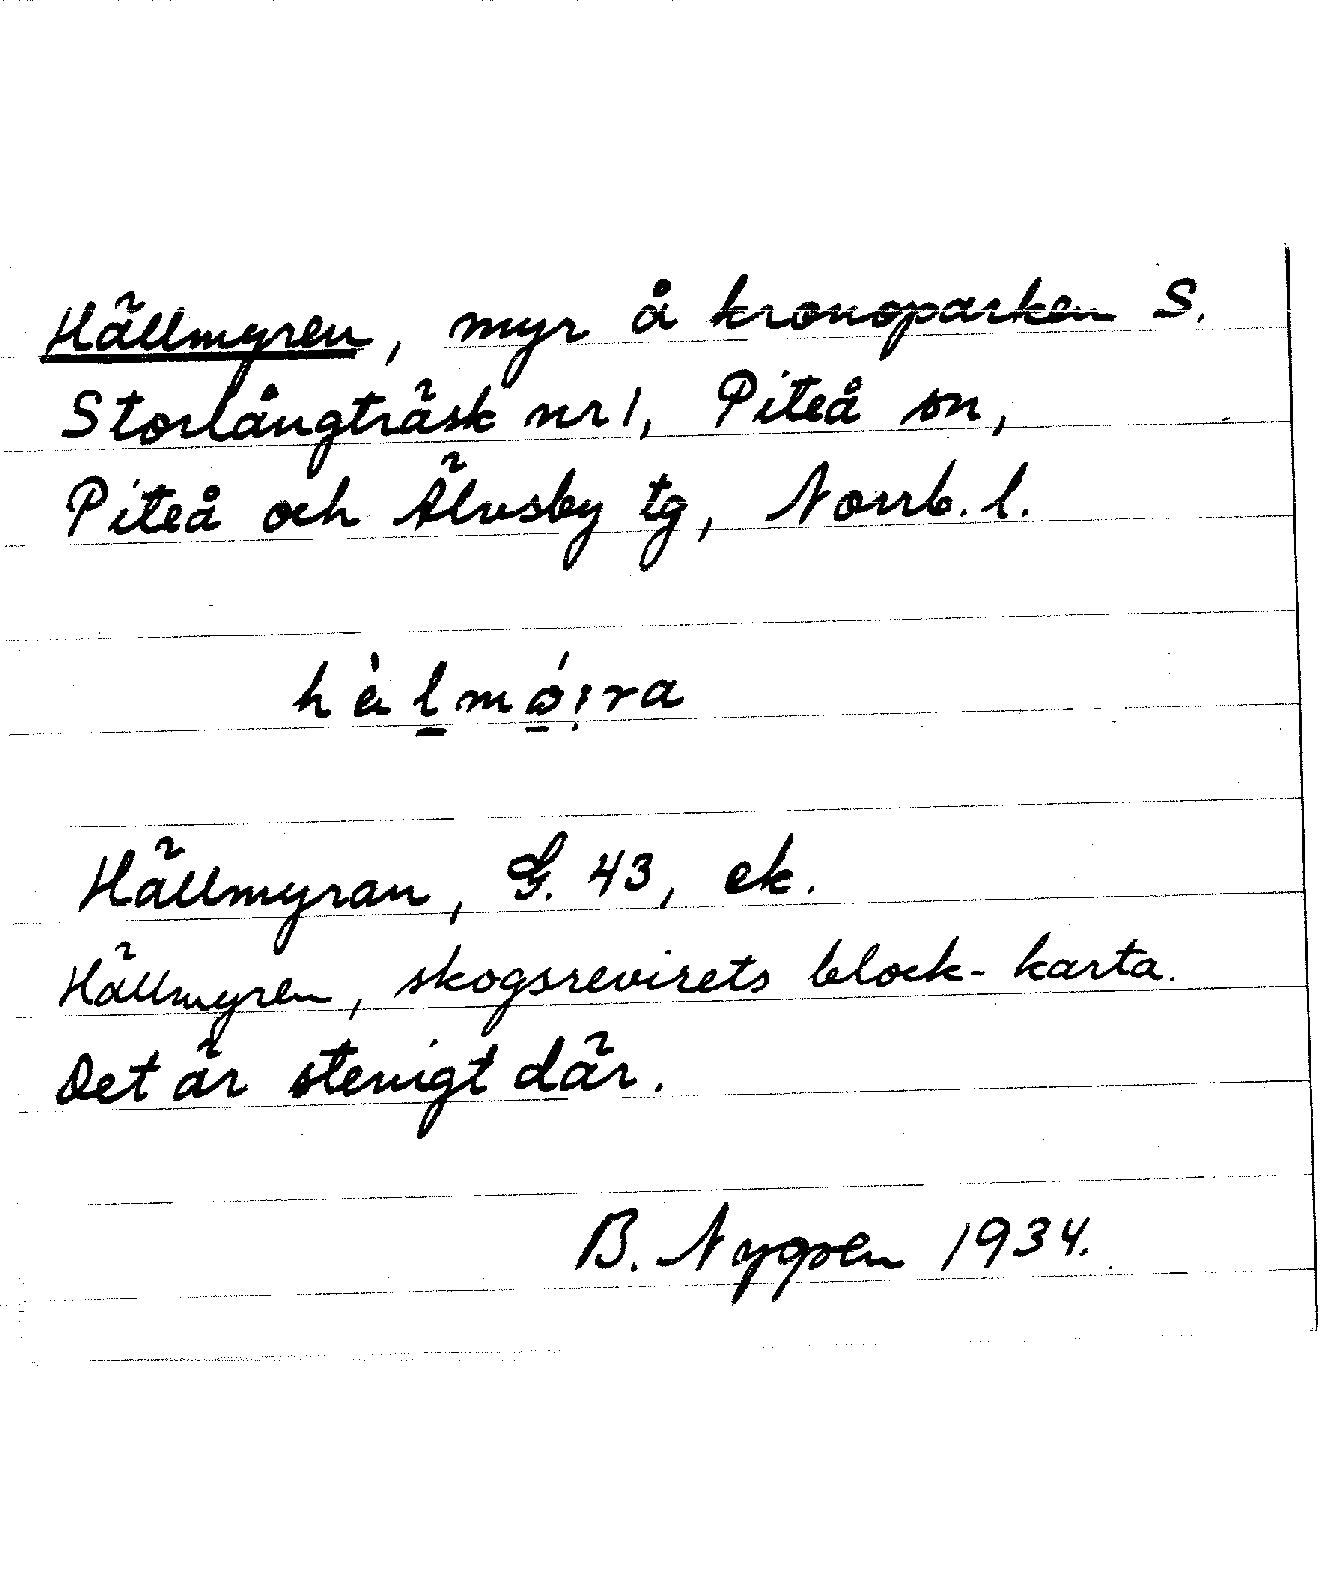 Hällmyren, myr å kronoparken S.
Storlångträsk nr 1, Piteå sn,
Piteå och Älvsby tg, Norrb. l.
Hällmyran, G. 43, ek.
Hällmyren, skogsrevirets block-karta.
Det är stenigt där.
B. Nygren 1934.